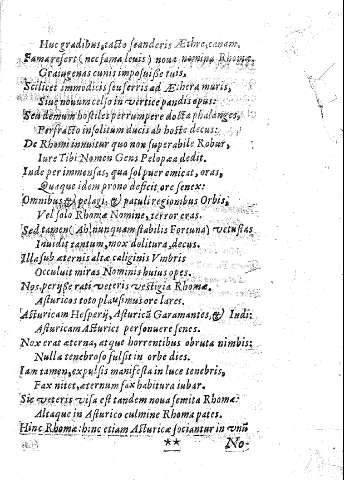 Huc gradibus, tacto scanderis Æthre, canam.
Fama refert (nec fama leuis) noua nomina Rhomæ,
Graiugenas cunis imposuisse tuis.
Scilicet immodicis seu ferris ad Æthera muris,
Siue nouum celso in vertice pandis opus:
Seu demum hostiles perrumpere docta phalanges,
Perfracto insolitum ducis ab hoste decus:
De Rhomi innuitur quo non superabile Robur,
Iure Tibi Nomen Gens Pelopæa dedit.
Inde per immensas, qua sol puer emicat, oras,
Quaque idem prono deficit ore senex:
Omnibus & pelagi, & patuli regionibus Orbis,
Vel solo Rhomæ Nomine, terror eras.
Sed tamen (Ah nunquam stabilis Fortuna) vetustas
Inuidit tantum, mox dolitura, decus.
Illa sub æternis altæ caliginis Vmbris
Occuluit miras Nominis huius opes.
Nos, perijsse rati veteris vestigia Rhomæ,
Asturicos toto plausimus ore lares.
Asturicam Hesperij, Asturicā Garamantes, & Indi
Asturicam Asturici personuere senes.
Nox erat æterna, atque horrentibus obruta nimbis:
Nulla tenebroso fulsit in orbe dies.
Iam tamen, expulsis manifesta in luce tenebris,
Fax nitet, æternum fax habitura iubar.
Sic veteris visa est tandem noua semita Rhomæ:
Altaque in Asturico culmine Rhoma pates.
Hinc Rhomæ: hinc etiam Asturicæ sociantur in vnū
** No-